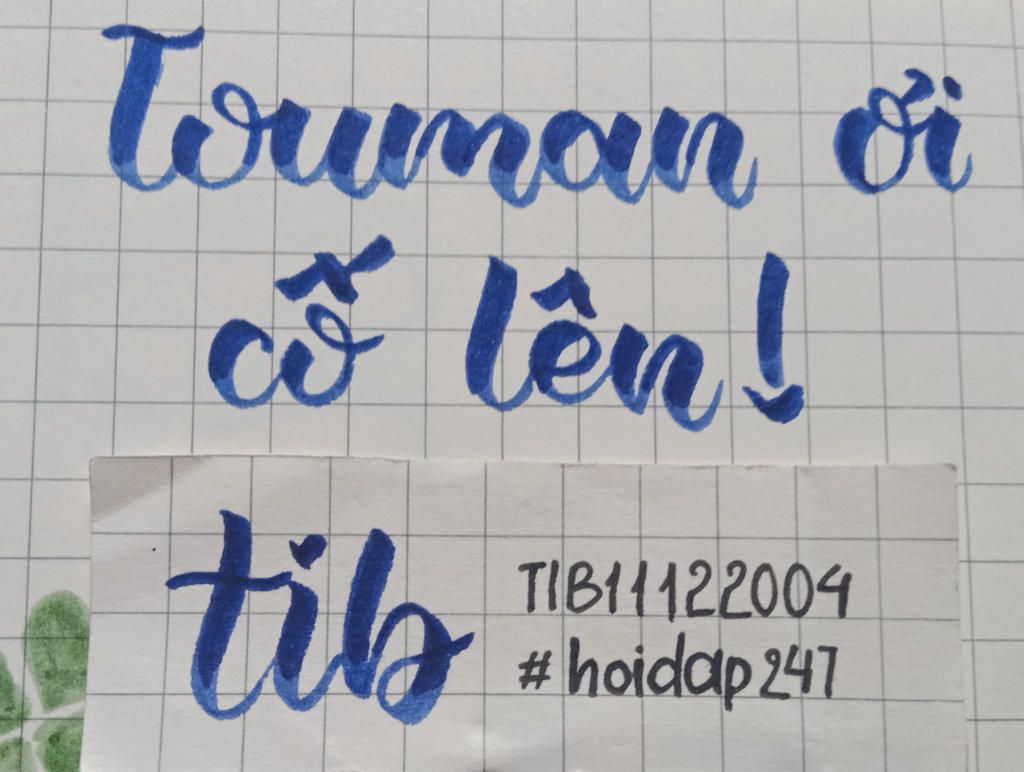 Touman ơi
cố lên!
tib
TIB11122004
#hoidap247